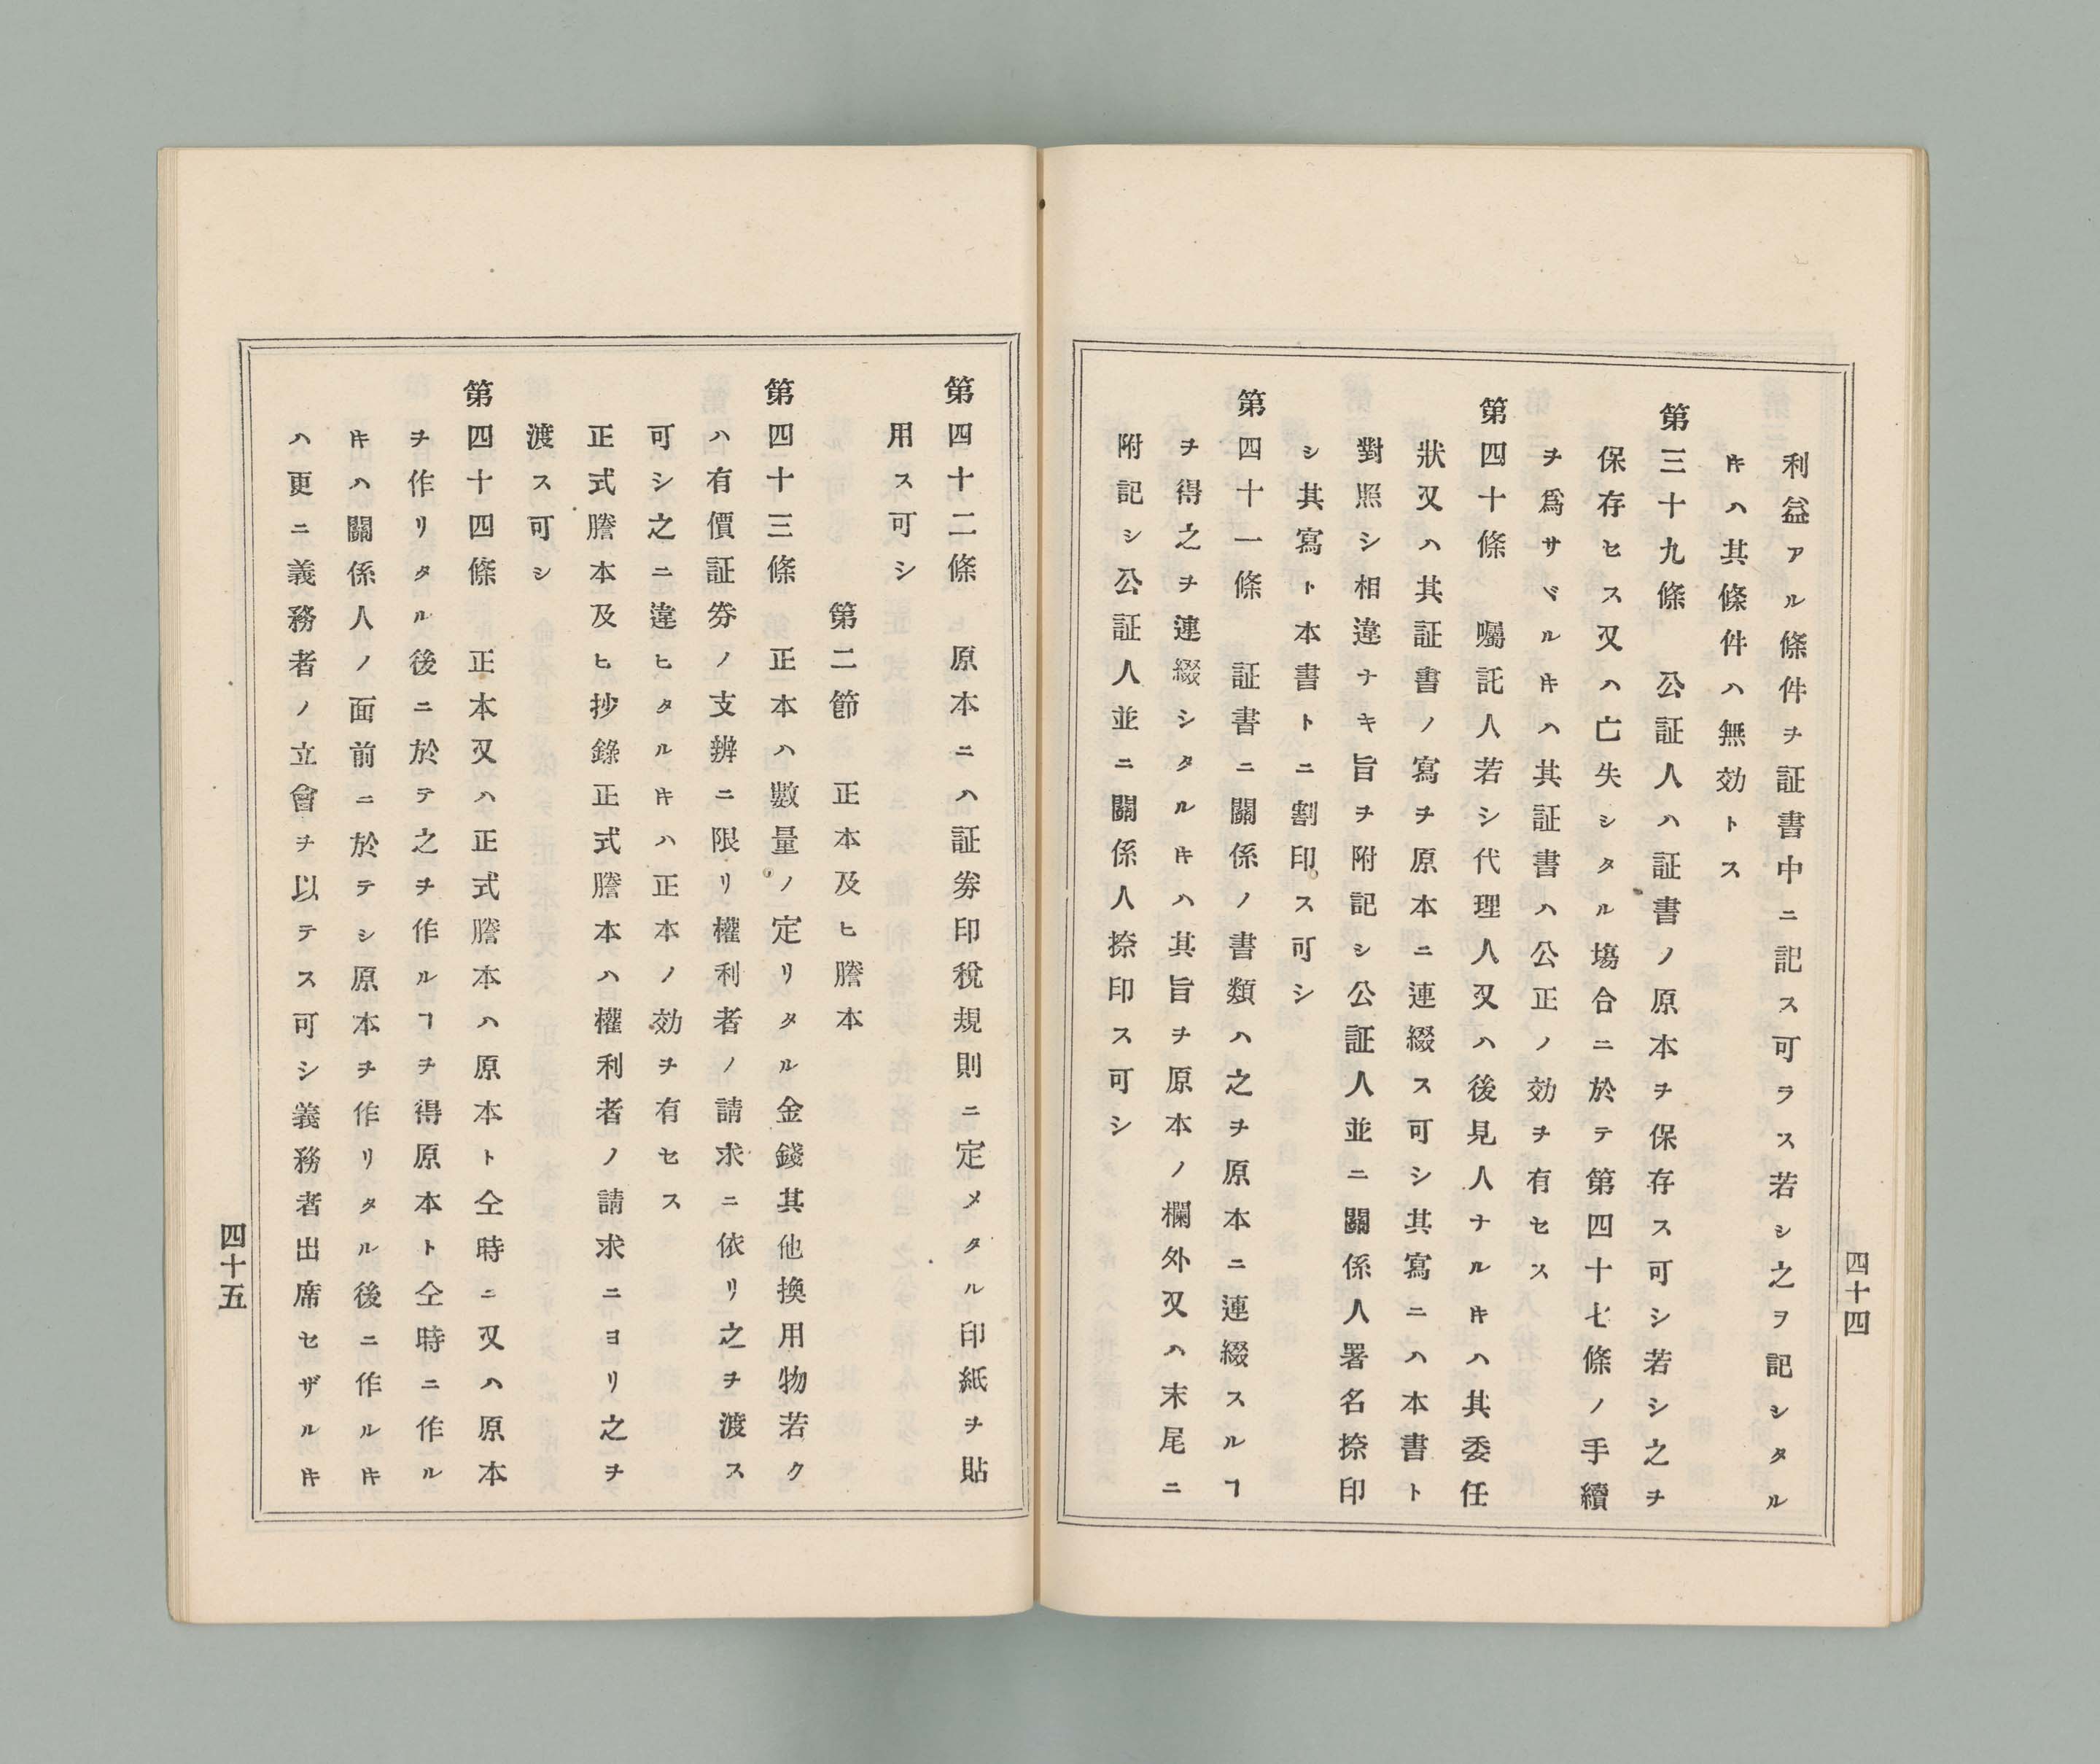 利益アル條件ヲ証書中ニ記ス可ラス若シ之ヲ記シタル
𬼀ハ其條件ハ無効トス
第三十九條　公証人ハ証書ノ原本ヲ保存ス可シ若シ之ヲ
保存セス又ハ亡失シタル塲合ニ於テ第四十七條ノ手續
ヲ爲サヾルキハ其証書ハ公正ノ効ヲ有セス
第四十條　囑託人若シ代理人又ハ後見人ナルキハ其委任
狀又ハ其証書ノ寫ヲ原本ニ連綴ス可シ其寫ニハ本書ト
對照シ相違ナキ旨ヲ附記シ公証人並ニ關係人署名捺印
シ其寫ト本書トニ割印ス可シ
第四十一條　証書ニ關係ノ書類ハ之ヲ原本ニ連綴スルヿ
ヲ得之ヲ連綴シタルキハ其旨ヲ原本ノ欄外又ハ末尾ニ
附記シ公証人並ニ關係人捺印ス可シ
四十四
第四十二條　原本ニハ証券印稅規則ニ定メタル印紙ヲ貼
用ス可シ
第二節　正本及ヒ謄本
第四十三條　正本ハ數量ノ定リタル金錢其他換用物若ク
ハ有價証券ノ支辨ニ限リ權利者ノ請求ニ依リ之ヲ渡ス
可シ之ニ違ヒタルキハ正本ノ効ヲ有セス
正式謄本及ヒ抄錄正式謄本ハ權利者ノ請求ニヨリ之ヲ
渡ス可シ
第四十四條　正本又ハ正式謄本ハ原本ト仝時ニ又ハ原本
ヲ作リタル後ニ於テ之ヲ作ルヿヲ得原本ト仝時ニ作ル
キハ關係人ノ面前ニ於テシ原本ヲ作リタル後ニ作ルキ
ハ更ニ義務者ノ立會ヲ以テス可シ義務者出席セザルキ
四十五